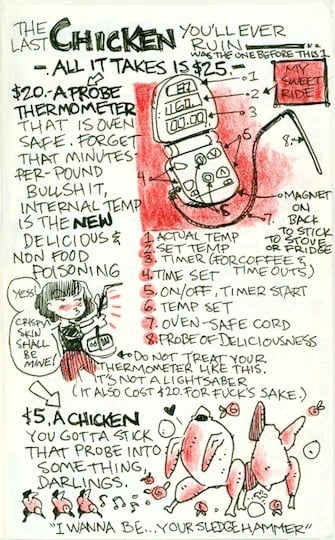 THE LAST CHICKEN YOU'LL EVER RUIN
WAS THE ONE BEFORE THIS!
- ALL IT TAKES IS $25. -
$20. - A PROBE
THERMOMETER
THAT IS OVEN
SAFE. FORGET
THAT MINUTES-
PER-POUND
BULLSHIT,
INTERNAL TEMP
IS THE NEW
DELICIOUS &
NON FOOD
POISONING
MY
SWEET
RIDE
1
2
3
160.
00.00
4
5
6
7.
8.
MAGNET
ON
BACK
TO STICK
TO STOVE
OR FRIDGE
1. ACTUAL TEMP
2. SET TEMP
3. TIMER (FOR COFFEE &
TIME OUTS)
4. TIME SET
5. ON/OFF, TIMER START
6. TEMP SET
7. OVEN-SAFE CORD
8. PROBE OF DELICIOUSNESS
YES!
CRISPY
SKIN
SHALL
BE MINE!
DO NOT TREAT YOUR
THERMOMETER LIKE THIS.
IT'S NOT A LIGHTSABER
(IT ALSO COST $20. FOR FUCK'S SAKE.)
$5. A CHICKEN
YOU GOTTA STICK
THAT PROBE INTO
SOMETHING,
DARLINGS.
"I WANNA BE... YOUR SLEDGEHAMMER"